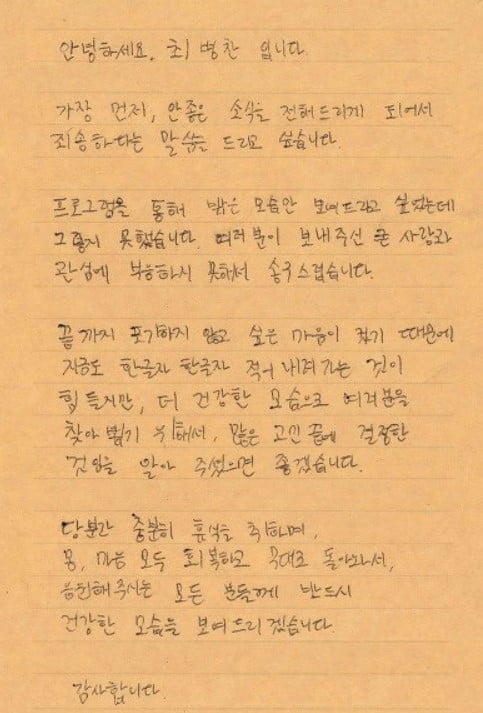 안녕하세요. 최 병찬 입니다.
가장 먼저, 안좋은 소식을 전해드리게 되어서
죄송하다는 말씀을 드리고 싶습니다.
프로그램을 통해 밝은 모습만 보여드리고 싶었는데
그렇지 못했습니다. 여러분이 보내주신 큰 사랑과
관심에 부응하지 못해서 송구스럽습니다.
끝까지 포기하지 않고 싶은 마음이 컸기 때문에
지금도 한글자 한글자 적어 내려가는 것이
힘들지만, 더 건강한 모습으로 여러분을
찾아 뵙기 위해서, 많은 고민 끝에 결정한
것임을 알아 주셨으면 좋겠습니다.
당분간 충분히 휴식을 취하며,
몸, 마음 모두 회복하고 무대로 돌아와서,
응원해주시는 모든 분들께 반드시
건강한 모습을 보여드리겠습니다.
감사합니다.